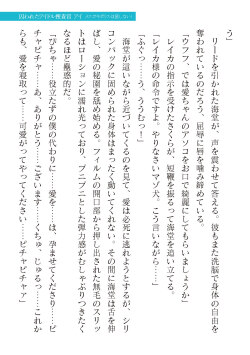 う」
　リードを引かれた海堂が、声を震わせて答える。彼もまた洗脳で身体の自由を
奪われているのだろう、屈辱に唇を噛み締めている。
「ウフフ、では愛ちゃんのアソコをお口で綺麗にしてもらいましょうか」
　レイカの指示を受けたさくらが、短鞭を振るって海堂を追い立てる。
「レイカ様の命令ですよ。やりなさいマゾ犬、こう言いながら……」
「ふぐっ……う、ううむっ…！」
　海堂が這いながら近づいてくるのを見て、愛は必死に逃れようとするが、シリ
コンパックに固められた身体はまったく動いてくれない。その間に海堂は舌を伸
ばし、愛の秘園を舐め始める。フィルムの開口部から押し出された無毛のスリッ
トはローションに濡れ光っており、プニプニとした弾力感がむしゃぶりつきたく
なるほど蠱惑的だ。
「ぴちゃ……役立たずの僕の代わりに……愛を……は、孕ませてくださり……ピ
チャピチャ……あ、ありがとう……ございます……くちゅ、じゅるっ……これか
らも、愛を寝取って……可愛がってやってください……ピチャピチャァ」